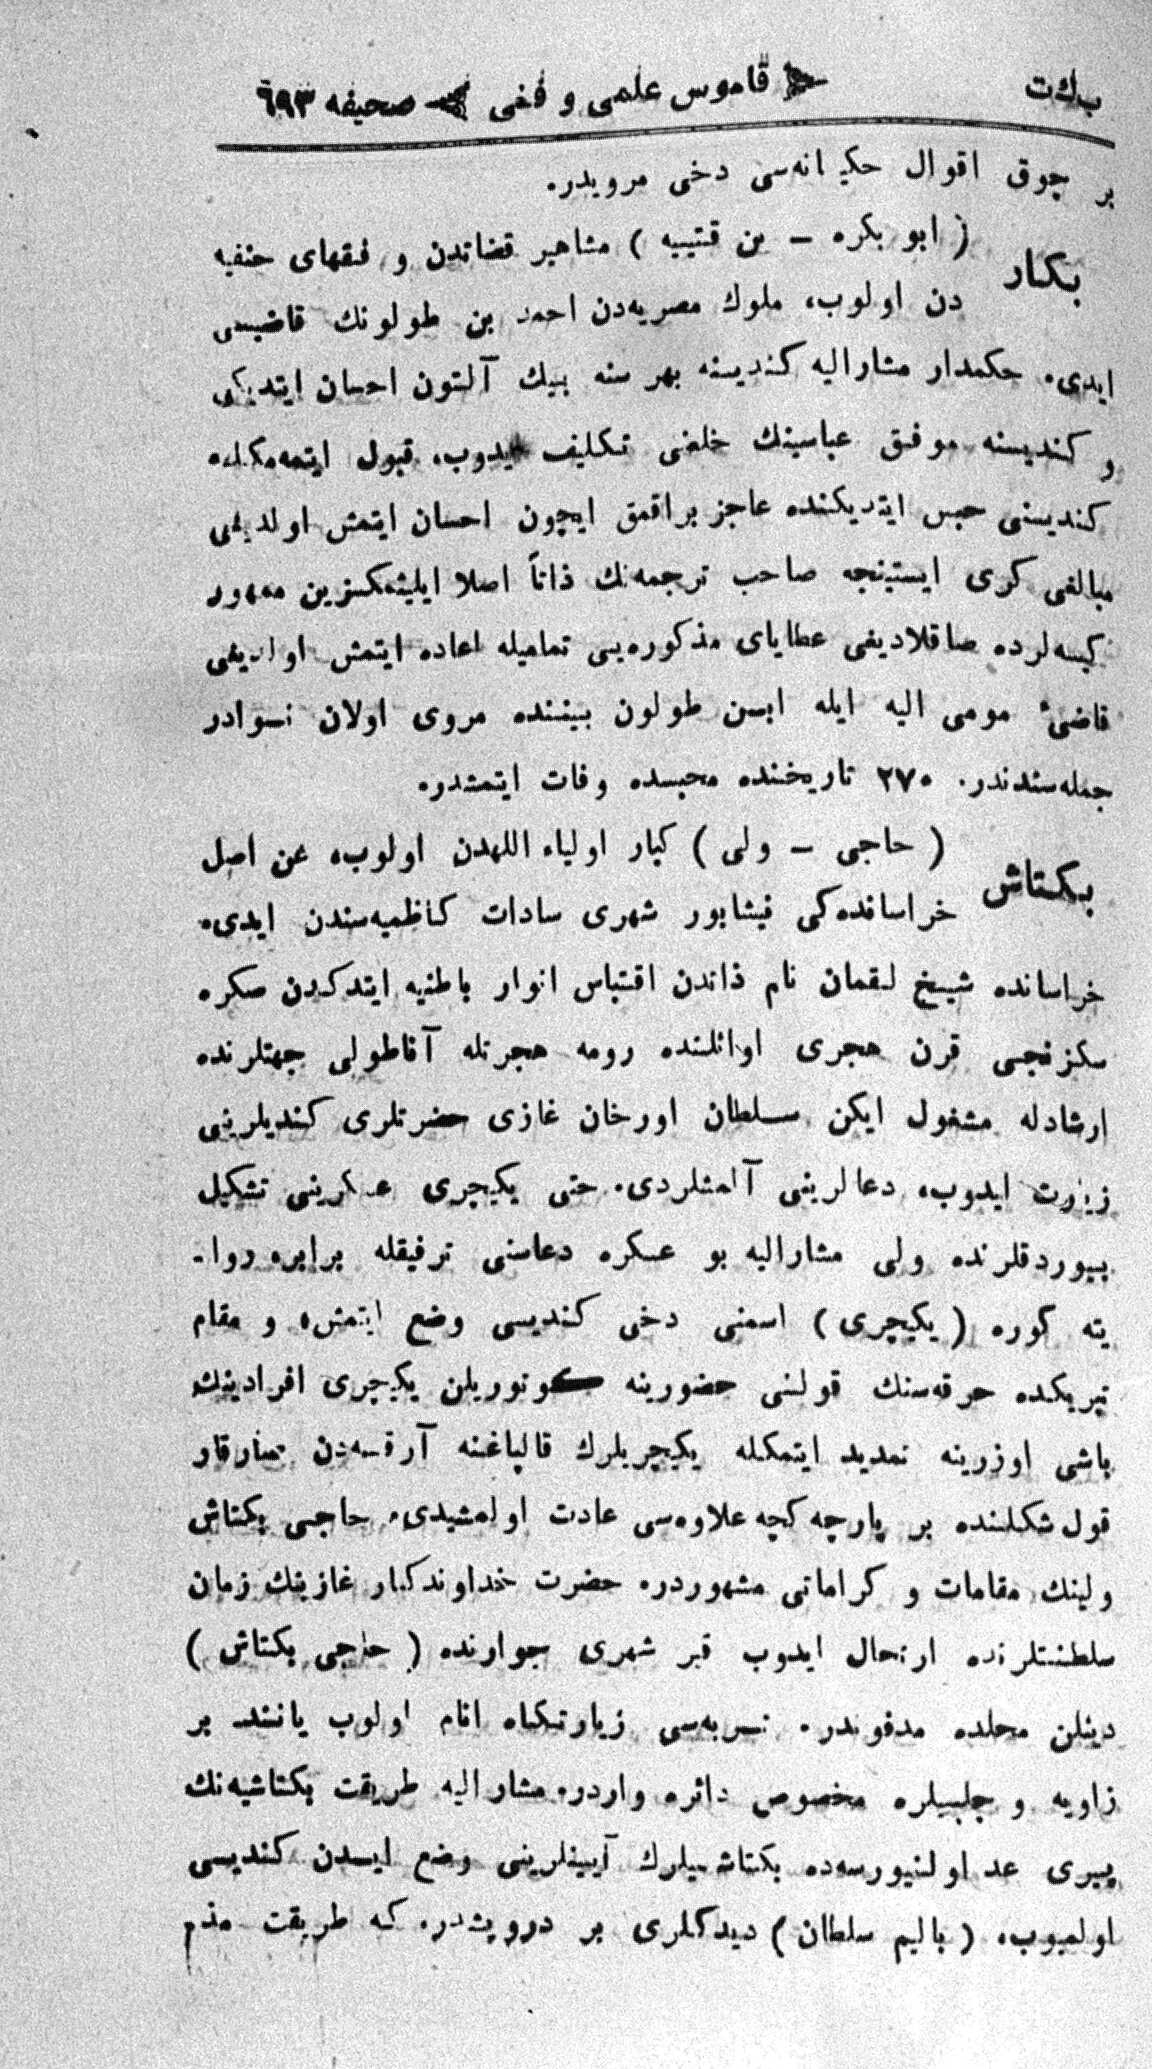 بكت قاموس علمی و فنی صحیفه ٦٩٣
بر چوق اقوال حكیمانه‌سی دخی مرویدر.
( ابو بكره – بن قتیبه ) مشاهیر قضاتدن و فقهای حنفیه
بكار
دن اولوب، ملوك مصریه‌دن احمد بن طولونك قاضیسی
ایدی. حكمدار مشارالیه كندیسنه بهر سنه بیك آلتون احسان ایتدیكی
و كندیسنه موفق عباسینك خلعنی تكلیف ایدوب، قبول ایتمه‌مكله
كندیسنی حبس ایتدیكنده عاجز براقمق ایچون احسان ایتمش اولدیغی
مبالغی كری ایستینجه صاحب ترجمه‌نك ذاتاً اصلا ایلیشمكسزین ممهور
كیسه‌لرده صاقلادیغی عطایای مذكوره‌یی تمامیله اعاده ایتمش اولدیغی
قاضیٔ مومی الیه ایله ابن طولون بیننده مروی اولان نوادر
جمله‌سندندر. ٢٧٠ تاریخنده محبسده وفات ایتمشدر.
( حاجی – ولی ) كبار اولیاء اللهدن اولوب، عن اصل
بكتاش
خراسانده‌كی نیشابور شهری سادات كاظمیه‌سندن ایدی.
خراسانده شیخ لقمان نام ذاتدن اقتباس انوار باطنیه ایتدكدن صكره
سكزنجی قرن هجری اوائلنده رومه هجرتله آناطولی جهتلرنده
ارشادله مشغول ایكن سلطان اورخان غازی حضرتلری كندیلرینی
زیارت ایدوب، دعالرینی آلمشلردی. حتی یكیچری عسكرینی تشكیل
بیوردقلرنده ولی مشارالیه بو عسكره دعاسنی ترفیقله برابر، روا-
یته كوره ( یكیچری ) اسمنی دخی كندیسی وضع ایتمش، و مقام
تبریكده خرقه‌سنك قولنی حضورینه كوتوریلن یكیچری افرادینك
باشی اوزرینه تمدید ایتمكله یكیچریلرك قالپاغنه آرقه‌دن صارقار
قول شكلنده بر پارچه كچه علاوه‌سی عادت اولمشیدی. حاجی بكتاش
ولینك مقامات و كراماتی مشهوردر. حضرت خداوندكار غازینك زمان
سلطنتلرنده ارتحال ایدوب قیر شهری جوارنده ( حاجی بكتاش )
دینلن محلده مدفوندر. تربه‌سی زیارتكاه انام اولوب یاننده بر
زاویه و چلبیلره مخصوص دائره واردر. مشار الیه طریقت بكتاشیه‌نك
پیری عد اولنیورسه‌ده بكتاشیلرك آیینلرینی وضع ایدن كندیسی
اولمیوب، ( بالیم سلطان ) دیدكلری بر درویشدر. كه طریقت